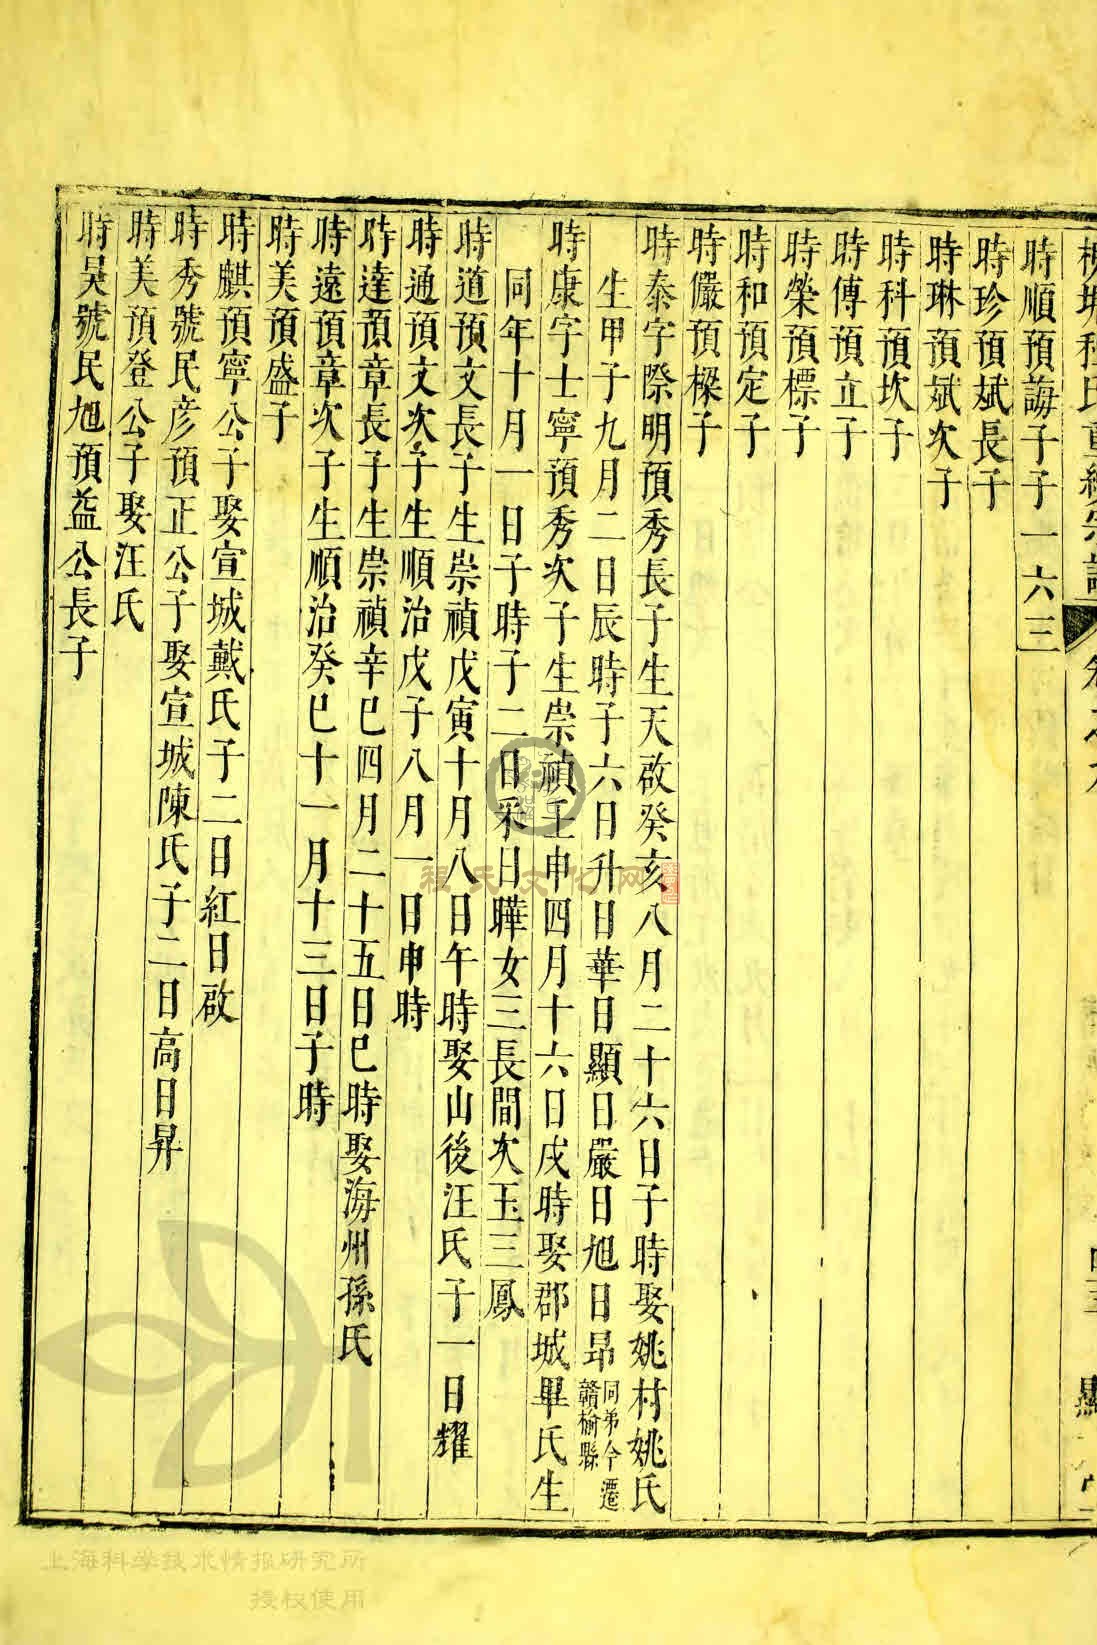 時順預誨子子一六三
時珍預斌長子
時琳預斌次子
時科預坎子
時傳預立子
時榮預標子
時和預定子
時儼預樑子
時泰字際明預秀長子生天啟癸亥八月二十六日子時娶姚村姚氏
生甲子九月二日辰時子六日升日華日顯日嚴日旭日昂同弟今遷贛榆縣
時康字士寧預秀次子生崇禎壬申四月十六日戌時娶郡城畢氏生
同年十月一日子時子二日采日曄女三長閏次玉三鳳
時道預文長子生崇禎戊寅十月八日午時娶山後汪氏子一日耀
時通預文次子生順治戊子八月一日申時
時達預章長子生崇禎辛巳四月二十五日巳時娶海州孫氏
時遠預章次子生順治癸巳十一月十三日子時
時美預盛子
時麒預寧公子娶宣城戴氏子二日紅日啟
時秀號民彥預正公子娶宣城陳氏子二日高日昇
時美預登公子娶汪氏
時昊號民旭預益公長子
程氏文化网
上海科学技术情报研究所
授权使用